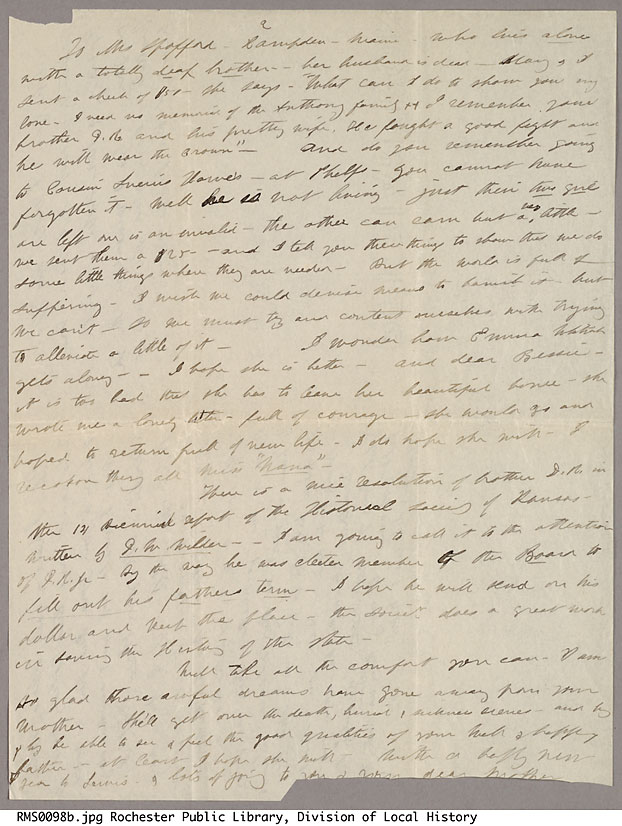 2
To Mrs Spofford - Hampden - Maine - who lives alone
with a totally deaf brother - her husband is dead - Mary & I
sent a check of $50 - she says - "What can I do to show you my
love - I need no memento of the Anthony family as I remember your
brother D.R and his pretty wife, He fought a good fight and
he will wear the crown" - And do you remember going
to Cousin Howe's - at Phelps - you cannot have
forgotten it - Well he is not living - just their two girls
are left one is an invalid - the other can earn but a very little -
we sent them a $25 - and I tell you these things to show that we do
some little things where they are needed - But the world is full of
suffering - I wish we could devise means to banish it - but
we can't - So we must try and content ourselves with trying
to alleviate a little of it - I wonder how Emma
gets along - - I hope she is better - and dear Bessie -
it is too bad that she has to leave her beautiful home - she
wrote me a lovely letter - full of courage - she would go and
hoped to return full of new life - I do hope she will - I
reckon they all miss "Nana" -
There is a nice resolution of brother D.R. in
the 13 Biennial report of the Historical society of Kansas -
written by D. W. Wilder - - I am going to call it to the attention
of D.R.Jr - By the way he was elected member of the Board to
fill out his fathers term - I hope he will send on his
dollar and keep the place - the Society does a great work
in saving the History of the State -
Well take all the comfort you can - I am
so glad those awful dreams have gone away from your
Mother - She'll get over the death, burial & sickness scenes - and by
& by be able to see & feel the good qualities of your
father - at least I hope she will - With a happy new
year to & lots of joy to you & your dear Mother
RMS0098b.jpg Rochester Public Library, Division of Local History